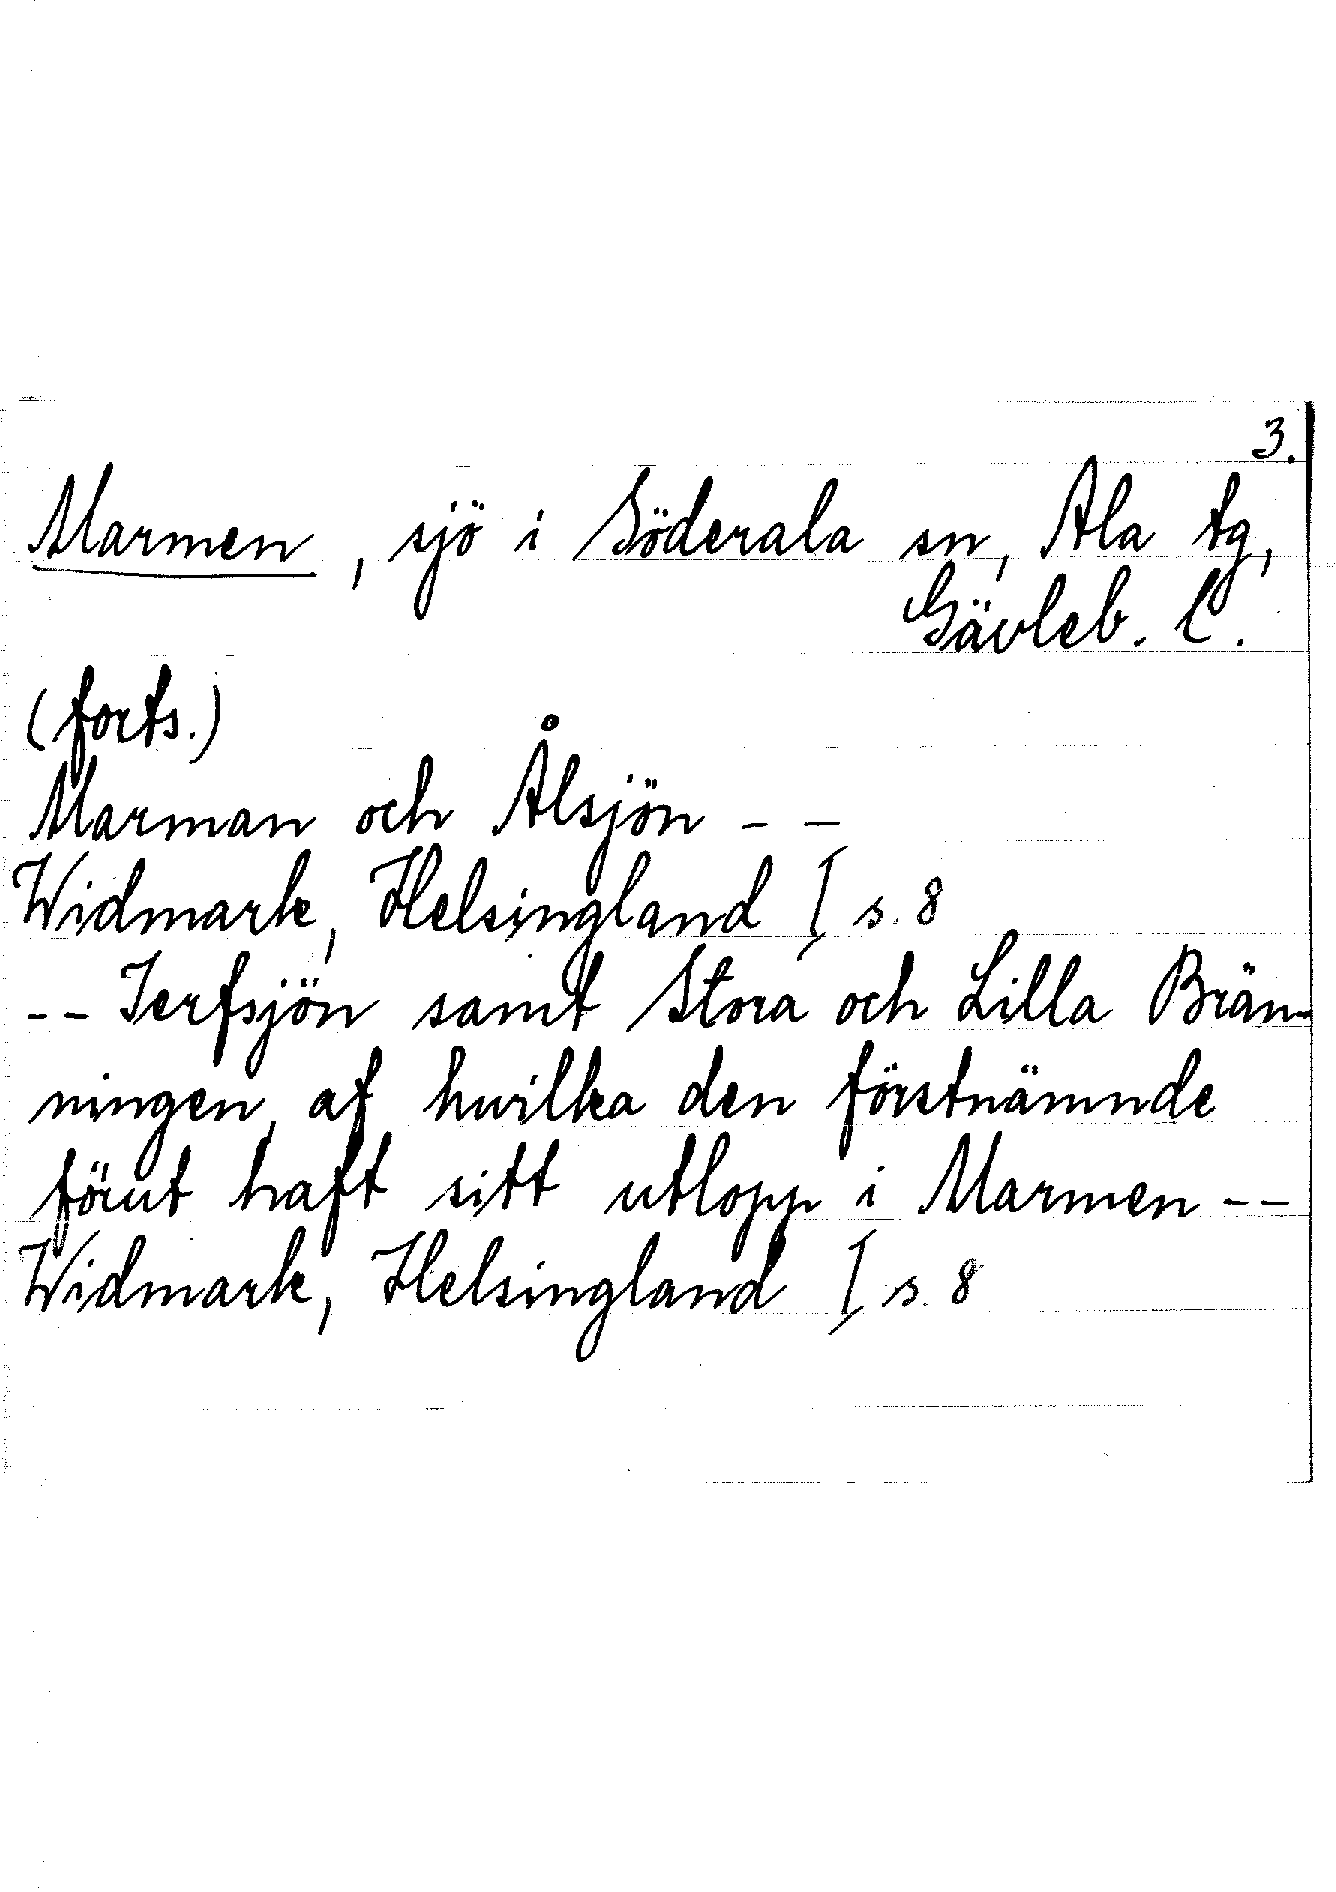 3.
Marmen, sjö i Söderala sn, Ala tg,
Gävleb. l.
(forts.)
Marman och Ålsjön - -
Widmark, Helsingland I s. 8
-- Jerfsjön samt Stora och Lilla Brän-
ningen, af hvilka den förstnämnde
förut haft sitt utlopp i Marmen --
Widmark, Helsingland I s. 8